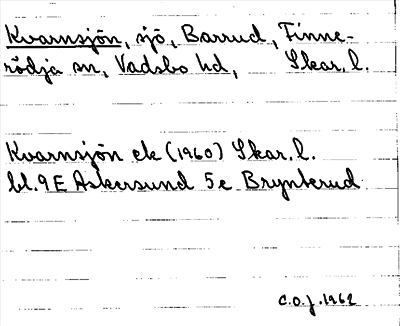 Kvarnsjön, sjö, Barrud, Finne-
rödja sn, Vadsbo hd, Skar. l.
Kvarnsjön ek (1960) Skar. l.
bl. 9E Askersund 5e Brynterud
C.O.J. 1962